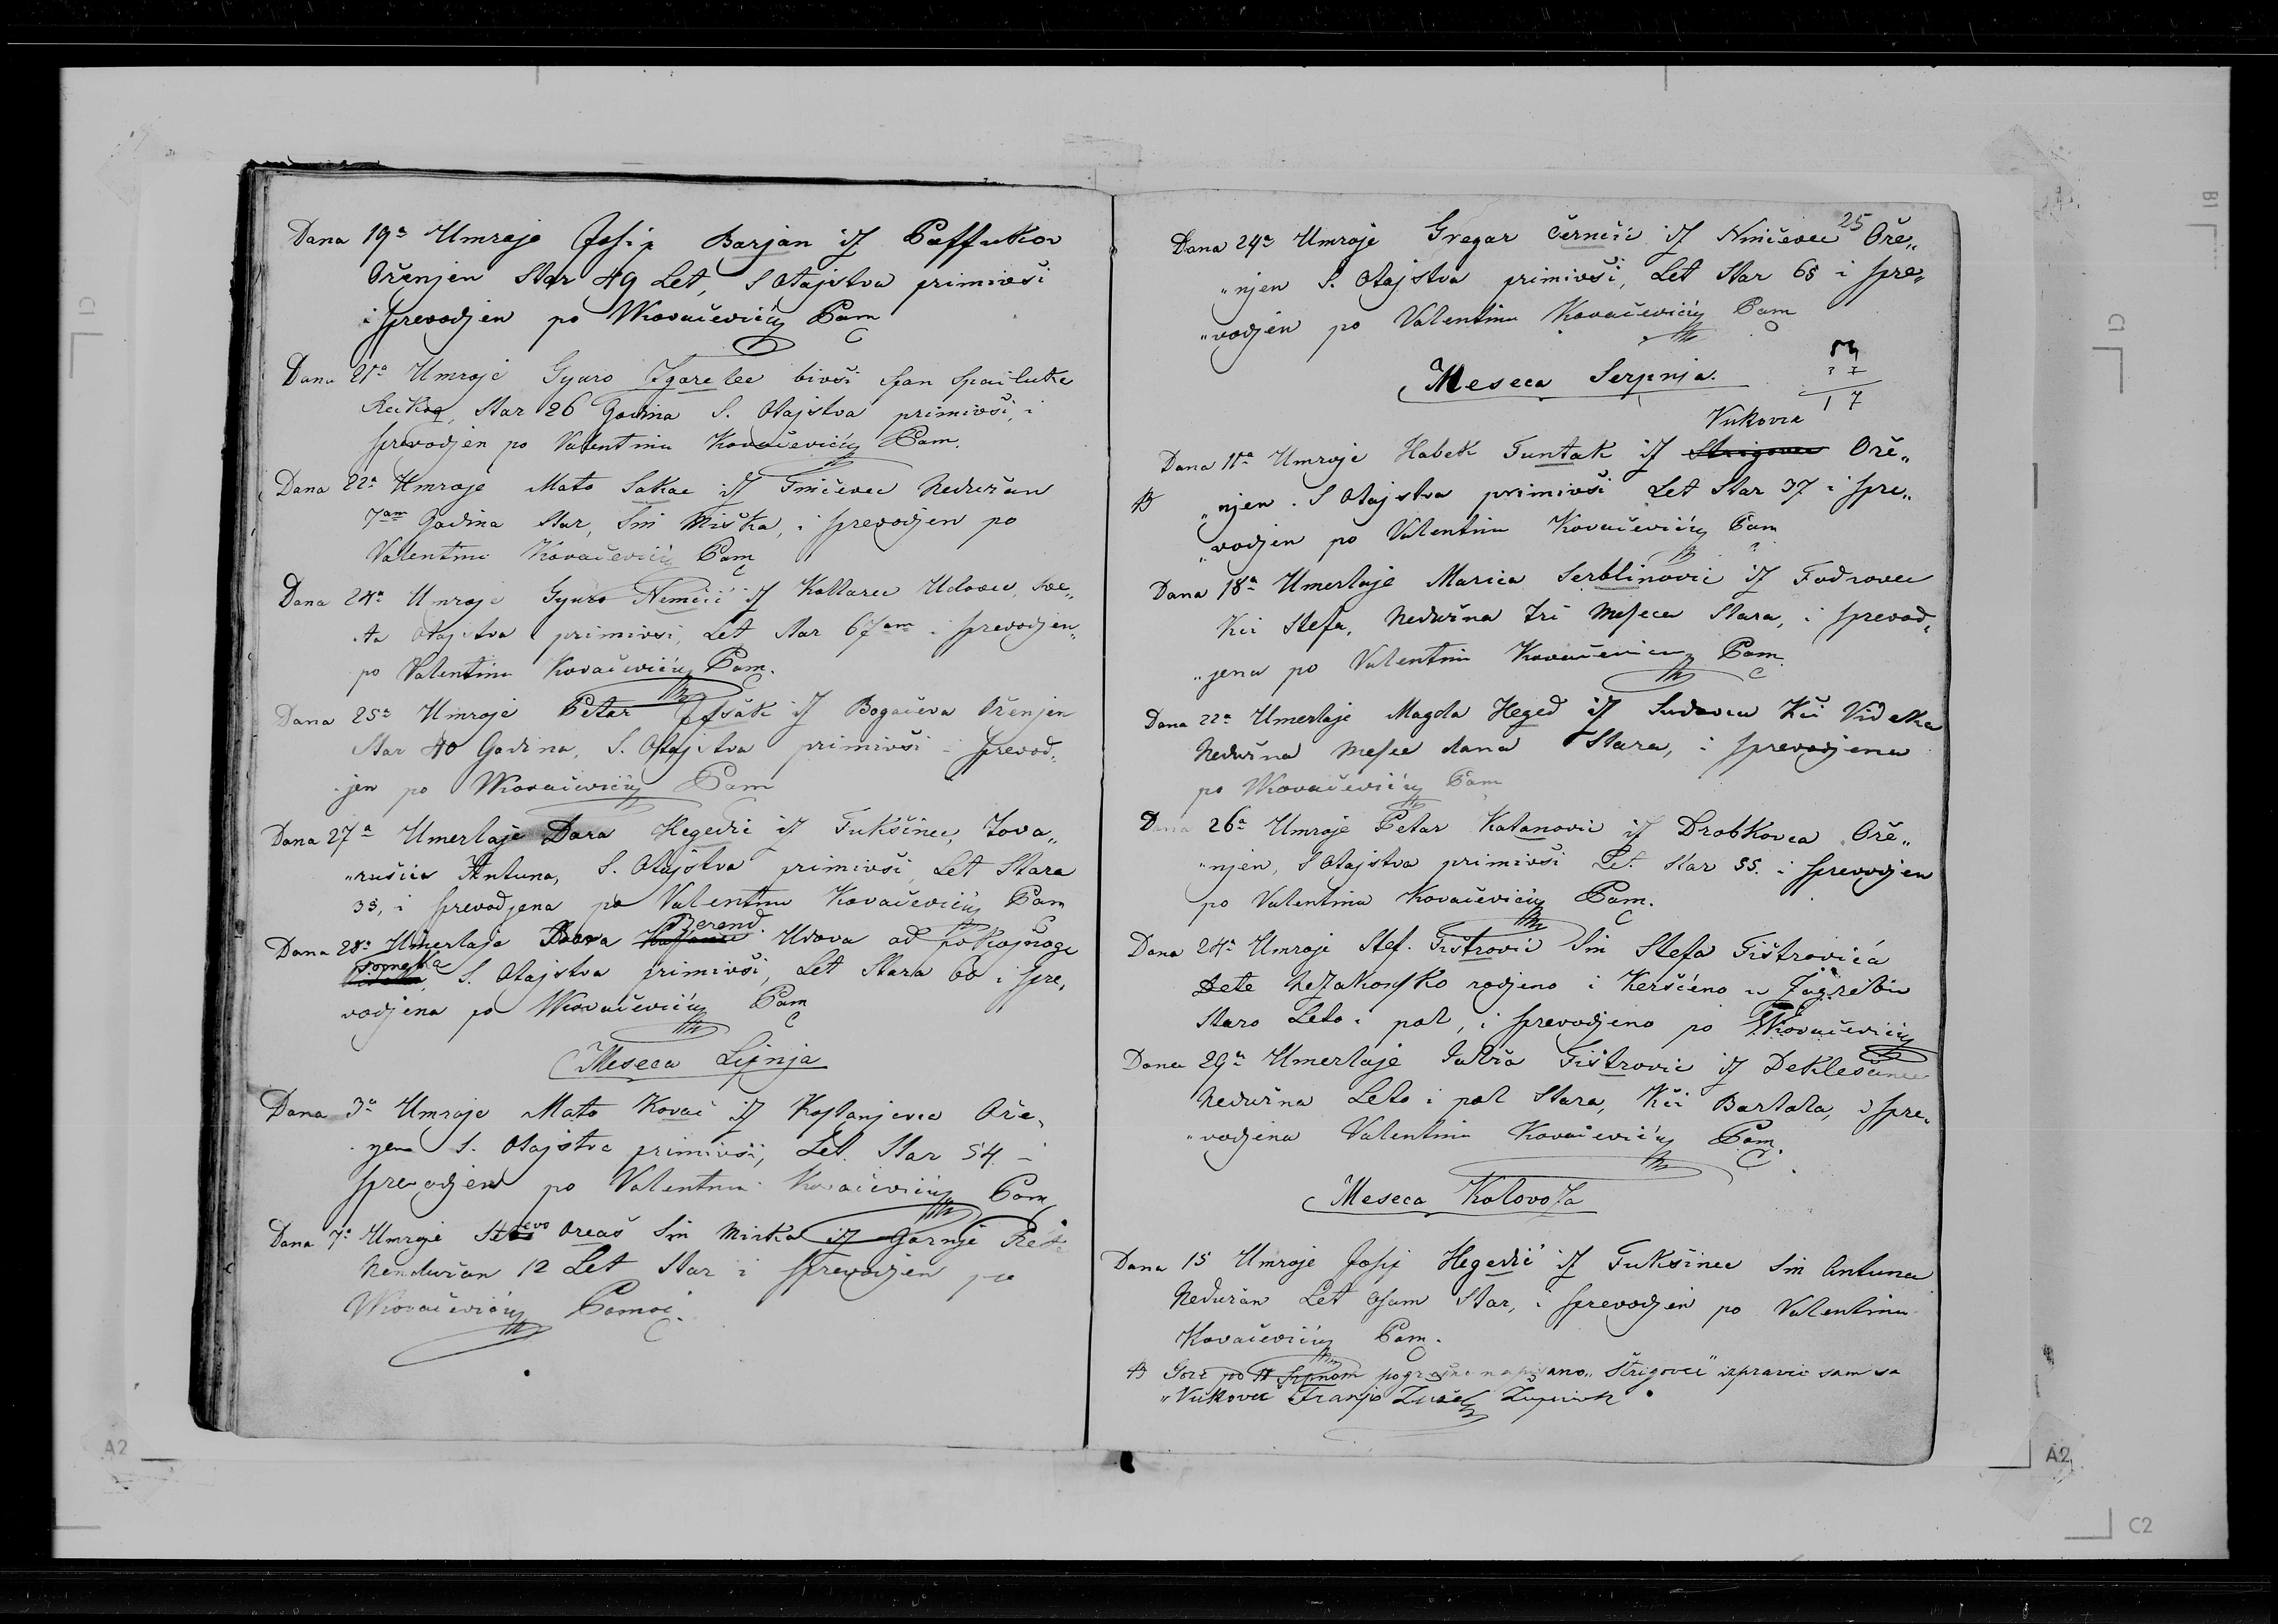 Dana 19a Umroje Josip Barjan iz Paffukov
Oženjen Star 49 Let, S Otajstva primivši
i sprevodjen po VKovačeviću Pam
Dana 21a Umroje Gyuro Igarelec bivši span
Star 26 Godina S. Otajstva primivši, i
sprevodjen po Valentinu Kovačeviću Pam.
Dana 22a Umroje Mato Sakac iz Finičevec Nedužan
7am Godina Star, Sin Miška, i sprevodjen po
Valentinu Kovačeviću Pam
Dana 24a Umroje Gyuro Nemčić iz Kottarec Udovec, sve„
ta Otajstva primivši, Let star 67am i sprevodjen„
po Valentinu Kovačeviću Pam.
Dana 25a Umroje Petar iz Bogačeva Oženjen
Star 40 Godina, S. Otajstva primivši i sprevod„
jen po VKovačeviću Pam
Dana 27a Umerlaje Dara Hegedić iz Fukšinec, Tova„
„rušica Antuna, S. Otajstva primivši, Let Stara
35, i sprevodjena po Valentinu Kovačeviću Pam
Berend.
Dana 28a Umerlaje Dora Udova od pokojnoga
Tomeka S. Otajstva primivši, Let Stara 60 i spre„
vodjena po VKovačeviću Pam
Meseca Lipnja
Dana 3a Umroje Mato Kovač iz Kostanjevec Ože„
njen S. Otajstva primivši, Let Star 54 i
sprevodjen po Valentinu Kovačeviću Pam
Dana 7a Umroje Stevo Oreaš Sin Mirka iz Gornje
Nendužan 12 Let Star i sprevodjen po
VKovačeviću Pamoć.
25
Dana 24a Umroje Gregar Černčić iz Ninčevec Ože„
„njen S. Otajstva primivši, Let Star 65 i spre„
„vodjen po Valentinu Kovačeviću Pam
Meseca Serpnja.
17
Vukovce
Dana 11a Umroje Habek Funtak iz Strigovec Ože„
#) „njen. S Otajstva primivši Let Star 37 i spre„
„vodjen po Valentinu Kovačeviću Pam
Dana 18a Umerlaje Marica Serblinović iz Fodrovec
Kći Stefa, Nedužna tri meseca Stara, i sprevod„
„jena po Valentinu Kovačeviću Pam.
Dana 22a Umerlaje Magda Heged iz Sudovca Kći Videka
Nedužna mesec dana Stara, i sprevodjena
po VKovačeviću Pam
Dana 26a Umroje Petar Katanović iz Drobkovca Ože„
„njen, S Otajstva primivši Let Star 55. i sprevodjen
po Valentinu Kovačeviću Pam.
Dana 24a Umroje Stef. Fištrović Sin Stefa Fištrovića
Dete Nezakonsko rodjeno i Keršćeno u Zagrebu
Staro Leto i pol, i sprevodjeno po VKovačeviću
Dana 29a Umerlaje Fištrović iz Deklešanec
Nedužna Leto i pol Stara, Kći Bartola, i spre„
„vodjena Valentinu Kovačeviću Pam.
Meseca Kolovoza
Dana 15 Umroje Josip Hegedić iz Fukšinec Sin Antuna
Nedužan Let Osam Star, i sprevodjen po Valentinu
Kovačeviću Pam.
#) Gore pod 11 Srpnom pogrešno napisano „Štrigovec" izpravio sam sa
„Vukovec" Franjo Župnik
C1
A2
B1
C1
A2
C2